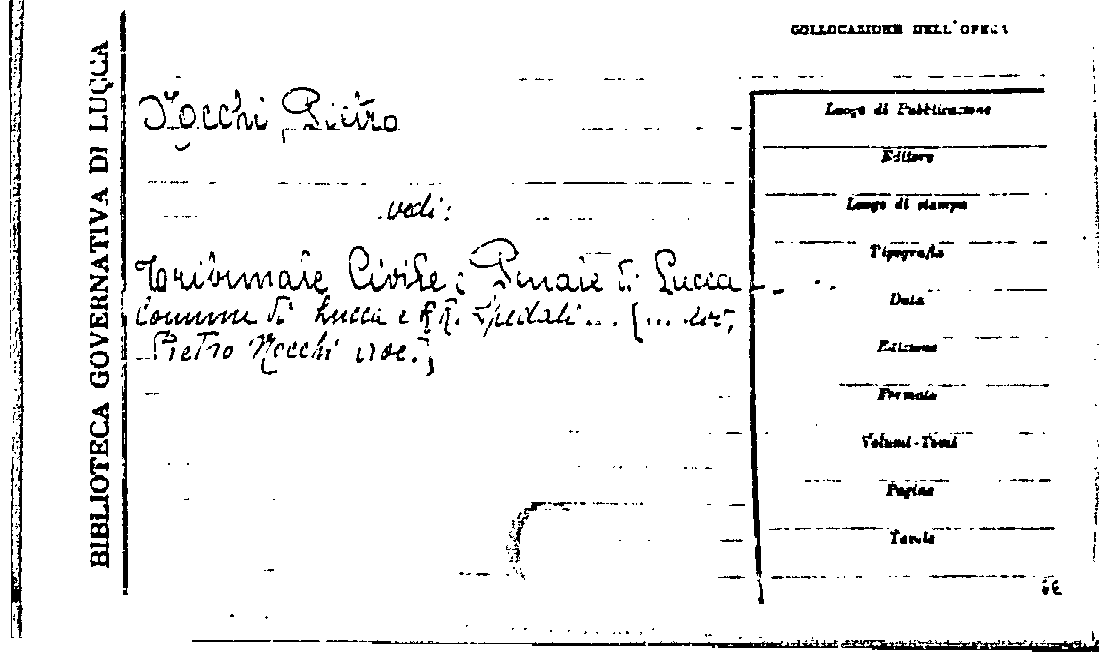 COLLOCAZIONE DELL'OPERA
BIBLIOTECA GOVERNATIVA DI LUCCA
Nocchi, Pietro
vedi:
Tribunale Civile e Penale di Lucca - ...
Comune di Lucca e RR. Spedali ... [...
Pietro Nocchi
Luogo di Pubblicazione
Editore
Luogo di stampa
Tipografia
Data
Edizione
Formato
Volumi-Tomi
Pagine
Tavole